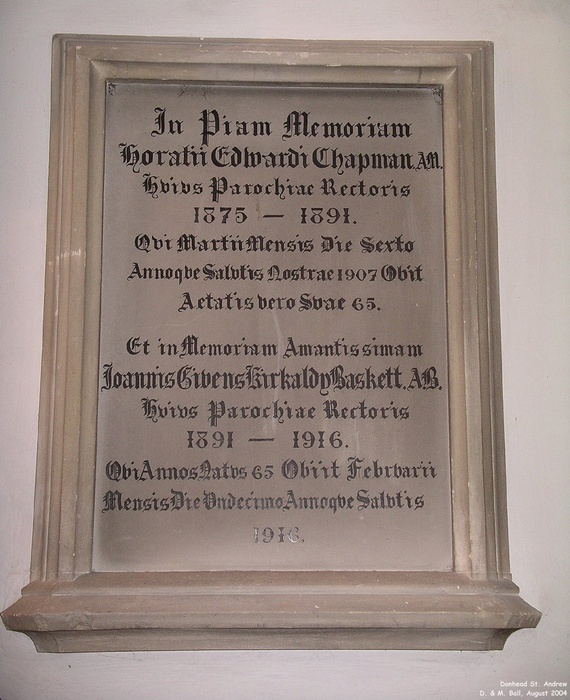 In Piam Memoriam
Horatii Edwardi Chapman, AM.
Hvivs Parochiae Rectoris
1875 — 1891.
Qvi Martii Mensis Die Sexto
Annoqve Salvtis Nostrae 1907 Obiit
Aetatis vero Svae 65.
Et in Memoriam Amantissimam
Joannis Givens Kirkaldy Baskett, AB.
Hvivs Parochiae Rectoris
1891 — 1916.
Qbi Annos Natvs 65 Obiit Febrvarii
Mensis Die Vndecimo Annoqve Salvtis
1916.
Donhead St. Andrew
D. & M. Ball, August 2004